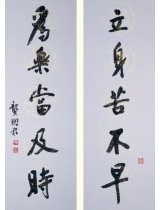 立身苦不早
為樂當及時